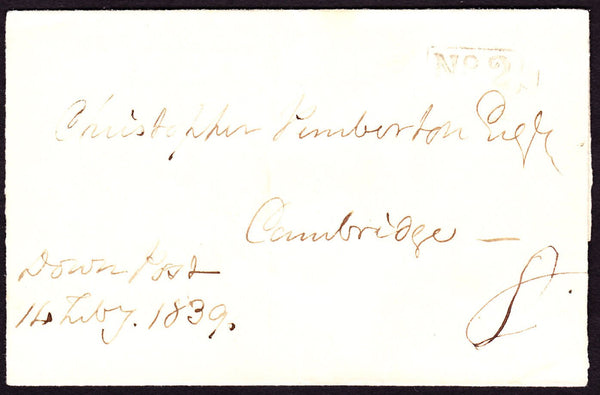 No. 2.
Christopher Pemberton Esqr
Cambridge —
Down Post
14 Feby. 1839.
8